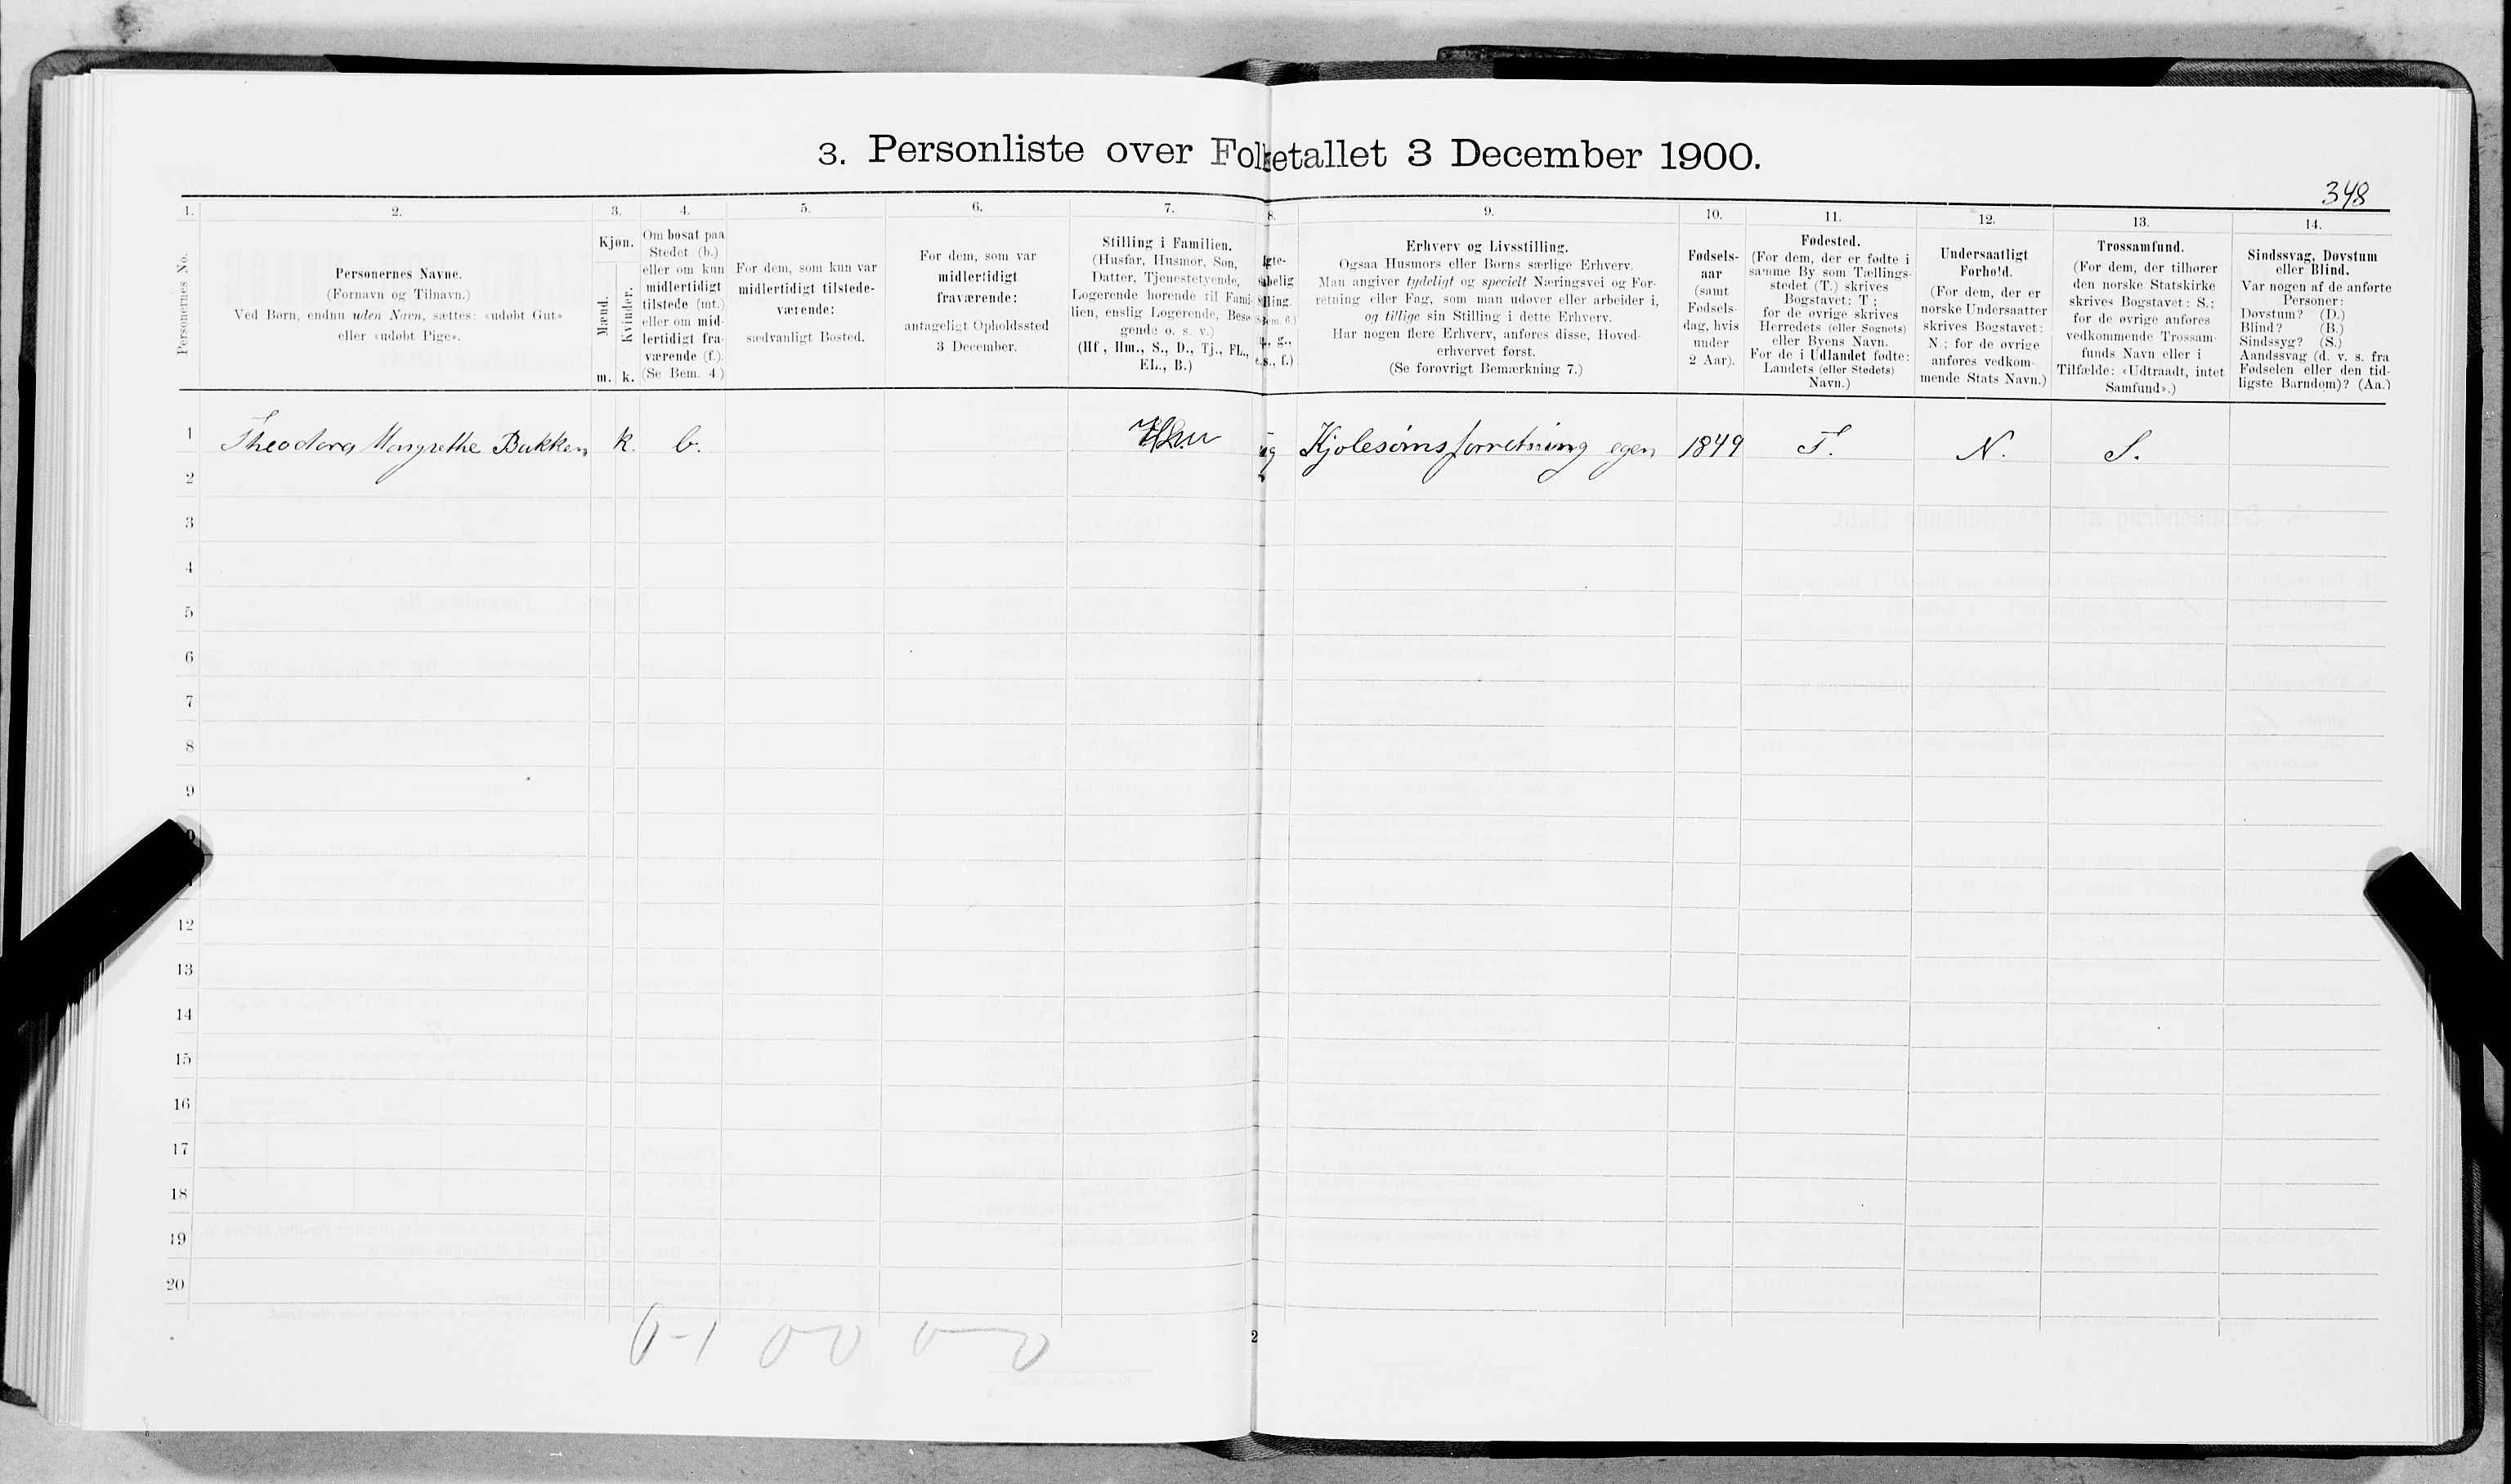 3. Personliste over Folketallet 3 December 1900.
348
1. 2. 3. 4. 5. 6. 7. 8. 9. 10. 11. 12. 13. 14.
Personernes No.
Personernes Navne.
(Fornavn og Tilnavn.)
Ved Børn, endnu uden Navn, sættes: «udøbt Gut»
eller «udøbt Pige».
Kjøn.
Mænd.
Kvinder.
m. k.
Om bosat paa
Stedet (b.)
eller om kun
midlertidigt
tilstede (mt.)
eller om mid-
lertidigt fra-
værende (f.).
(Se Bem. 4.)
For dem, som kun var
midlertidigt tilstede-
værende:
sædvanligt Bosted.
For dem, som var
midlertidigt
fraværende:
antageligt Opholdssted
3 December.
Stilling i Familien.
(Husfar, Husmor, Søn,
Datter, Tjenestetyende,
Logerende hørende til Fami-
lien, enslig Logerende, Besø-
gende o. s. v.)
(Hf., Hm., S., D., Tj., FL.,
EL., B.)
gte-
belig
lling.
Bem. 6.)
g.,
s., f.)
Erhverv og Livsstilling.
Ogsaa Husmors eller Børns særlige Erhverv.
Man angiver tydeligt og specielt Næringsvei og For-
retning eller Fag, som man udøver eller arbeider i,
og tillige sin Stilling i dette Erhverv.
Har nogen flere Erhverv, anføres disse, Hoved-
erhvervet først.
(Se forøvrigt Bemærkning 7.)
Fødsels-
aar
(samt
Fødsels-
dag, hvis
under
2 Aar).
Fødested.
(For dem, der er fødte i
samme By som Tællings-
stedet (T.) skrives
Bogstavet: T;
for de øvrige skrives
Herredets (eller Sognets)
eller Byens Navn.
For de i Udlandet fødte:
Landets (eller Stedets)
Navn.)
Undersaatligt
Forhold.
(For dem, der er
norske Undersaatter
skrives Bogstavet:
N.; for de øvrige
anføres vedkom-
mende Stats Navn.)
Trossamfund.
(For dem, der tilhører
den norske Statskirke
skrives Bogstavet: S.;
for de øvrige anføres
vedkommende Trossam-
funds Navn eller i
Tilfælde: «Udtraadt, intet
Samfund».)
Sindssvag, Døvstum
eller Blind.
Var nogen af de anførte
Personer:
Døvstum? (D.)
Blind? (B.)
Sindssyg? (S.)
Aandssvag (d. v. s. fra
Fødselen eller den tid-
ligste Barndom)? (Aa.)
1 Theodora Margrethe Bakken k. b. ug Kjolesømsforretning egen 1849 T. N. S.
2
3
4
5
6
7
8
9
12
13
14
15
16
17
18
19
20
0-1 00 0-0
2